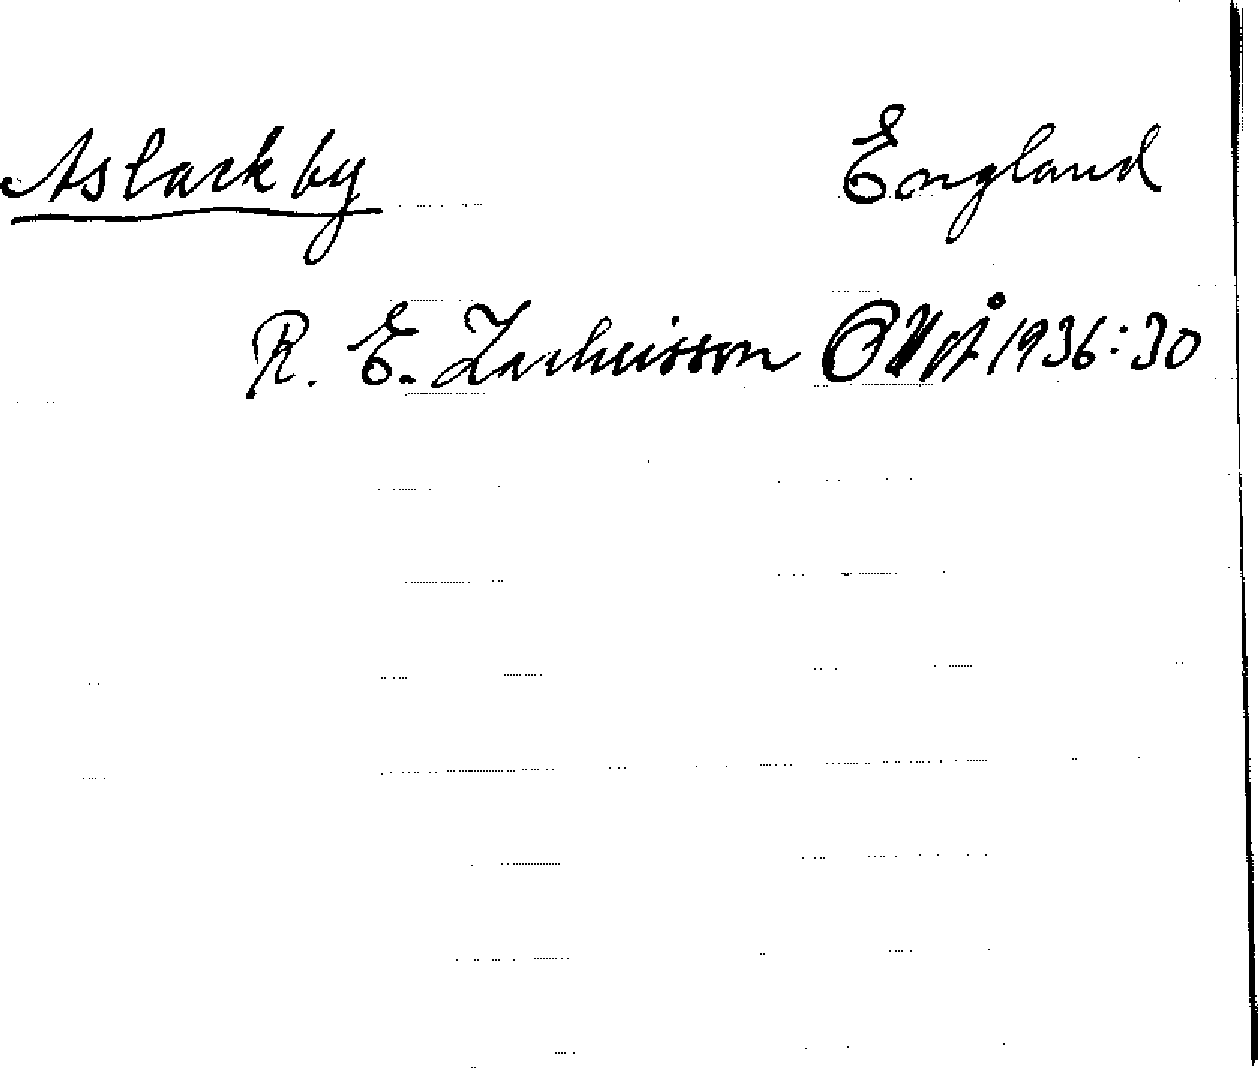 Aslackby England
R. E. Zachrisson 1936:30